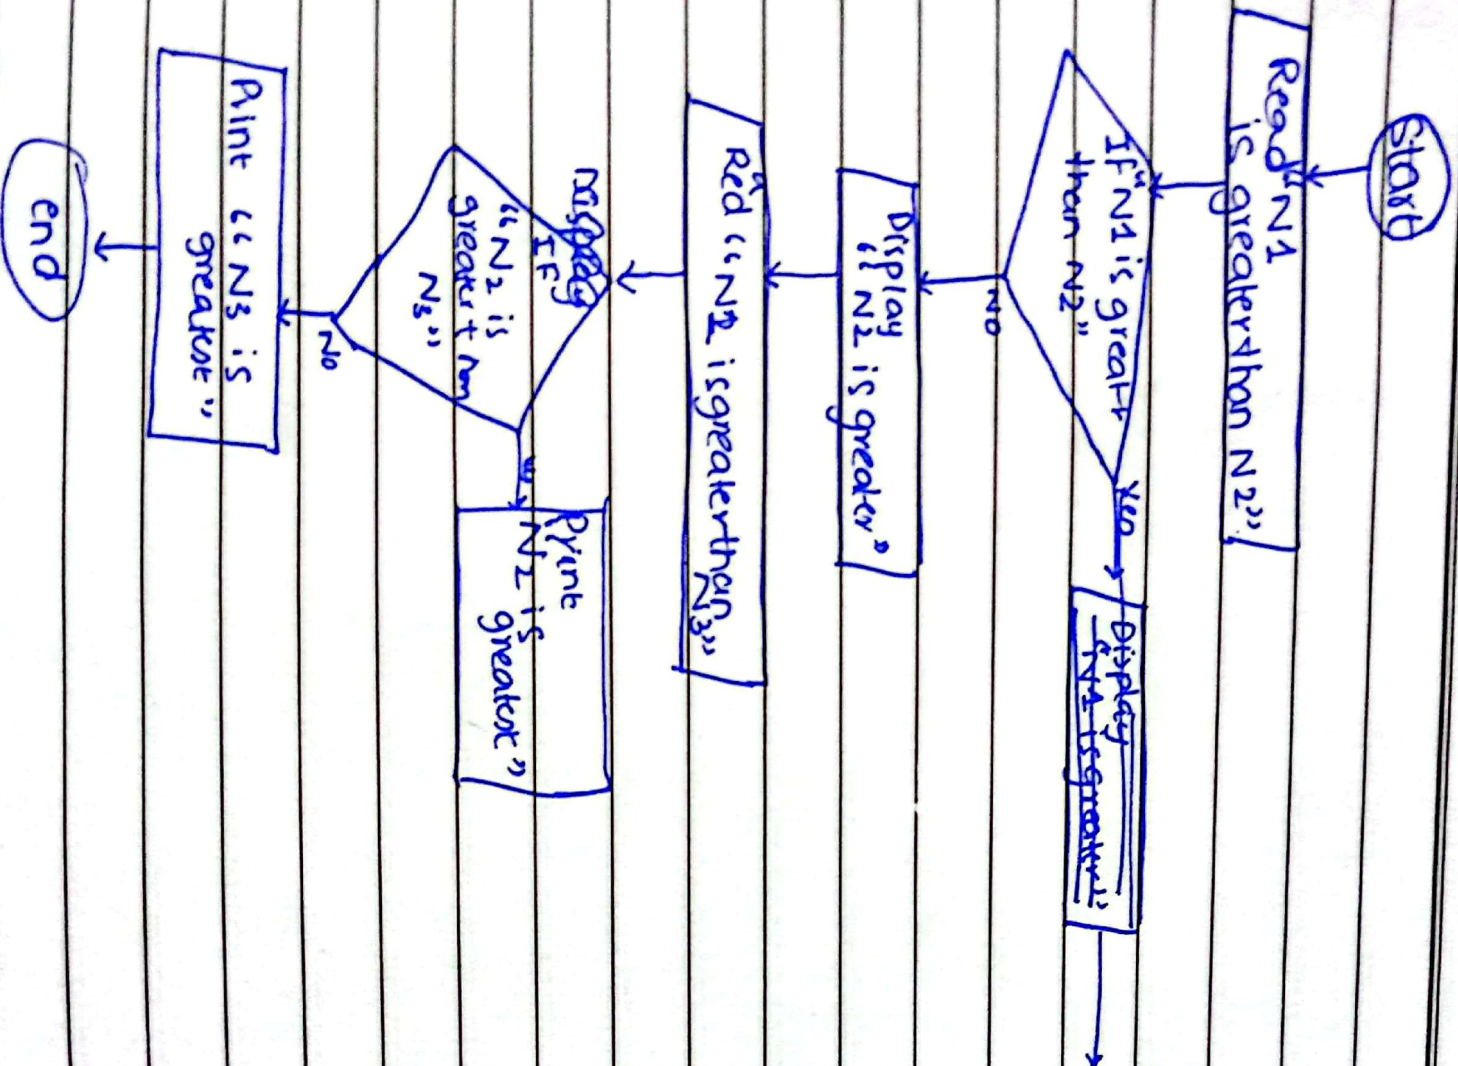 Start
Read "N1
is greater than N2".
If "N1 is great
than N2"
Yes
Display
"N1 is greater"
No
Display
"N2 is greater"
Red "N2 is greater than
N3"
Display
IF
"N2 is
greater than
N3"
Print
N2 is
greatest"
No
Print "N3 is
greatest"
end